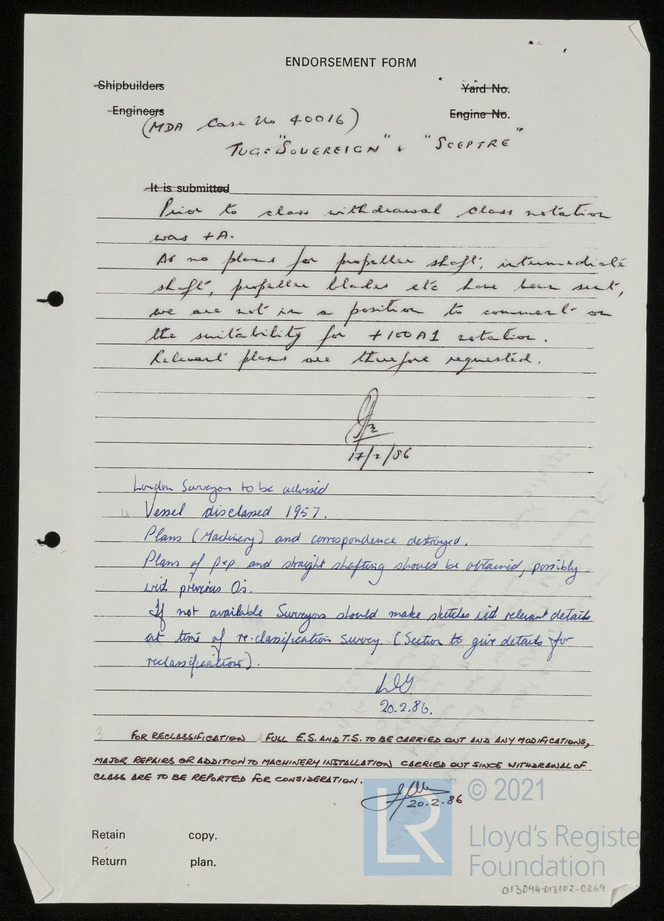 ENDORSEMENT FORM
Shipbuilders Yard No.
Engineers Engine No.
(MDA Case No 40016)
TUGS "SOVEREIGN" & "SCEPTRE"
It is submitted
Prior to class withdrawal class notation
was +A.
As no plans for propeller shaft, intermediate
shaft, propeller blades etc have been sent,
we are not in a position to comment on
the suitability for +100A1 notation.
Relevant plans are therefore requested.
17/2/86
London Surveyors to be advised
Vessel disclassed 1957.
Plans (Machinery) and correspondence destroyed.
Plans of prop. and straight shafting should be obtained, possibly
with previous Os.
If not available Surveyors should make sketches with relevant details
at time of re-classification survey. (Section to give details for
reclassification).
20.2.86.
3 FOR RECLASSIFICATION FULL E.S. AND T.S. TO BE CARRIED OUT AND ANY MODIFICATIONS,
MAJOR REPAIRS OR ADDITION TO MACHINERY INSTALLATION CARRIED OUT SINCE WITHDRAWAL OF
CLASS ARE TO BE REPORTED FOR CONSIDERATION.
20.2.86
Retain copy.
Return plan.
LR © 2021
Lloyd's Register
Foundation
013094-013102-0269